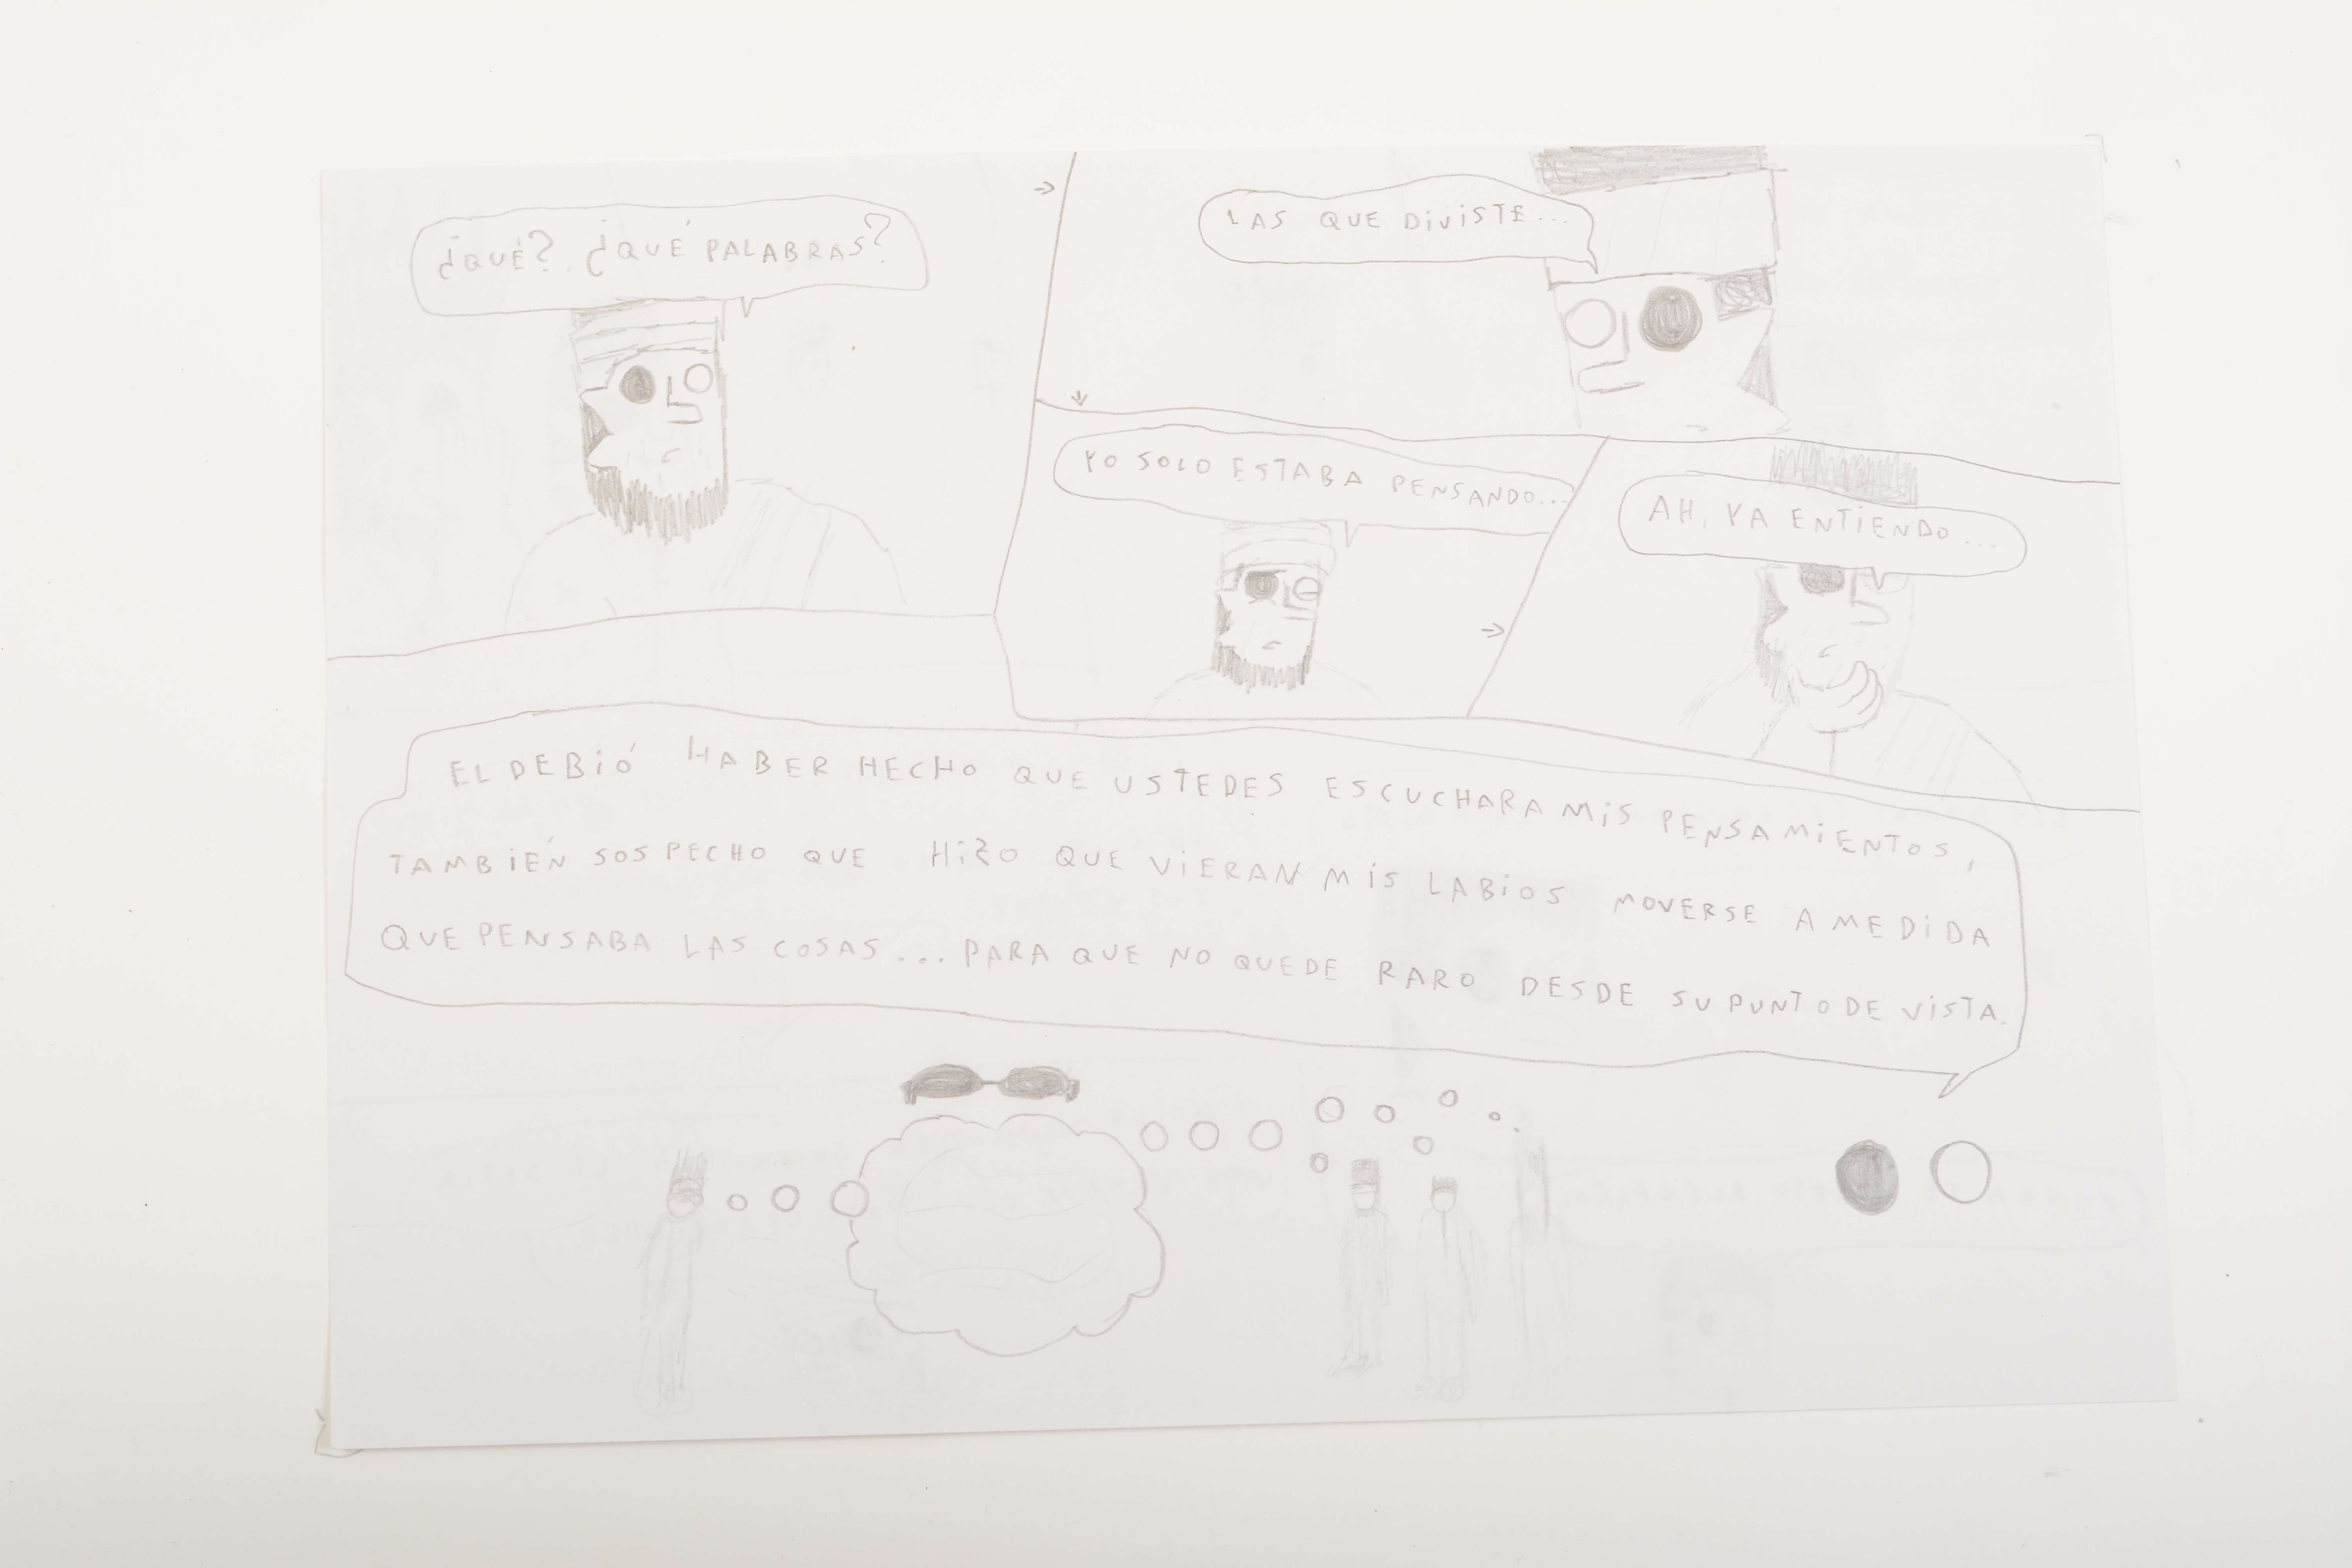 ¿QUÉ?, ¿QUÉ PALABRAS?
LAS QUE DIJISTE...
YO SOLO ESTABA PENSANDO...
AH, YA ENTIENDO...
EL DEBIÓ HABER HECHO QUE USTEDES ESCUCHARA MIS PENSAMIENTOS,
TAMBIÉN SOSPECHO QUE HIZO QUE VIERAN MIS LABIOS MOVERSE A MEDIDA
QUE PENSABA LAS COSAS... PARA QUE NO QUEDE RARO DESDE SU PUNTO DE VISTA.